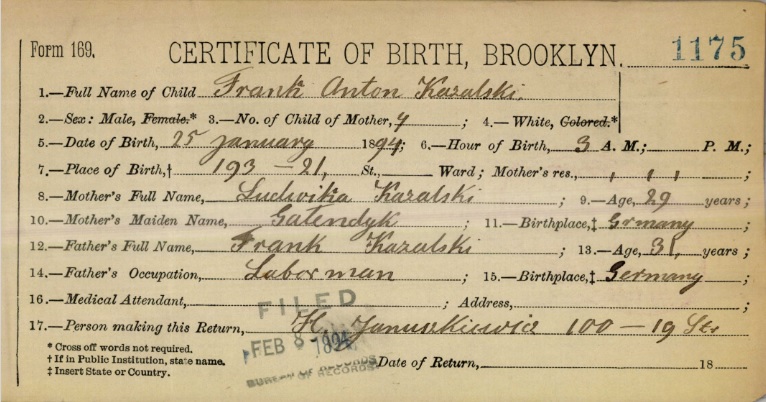 Form 169. CERTIFICATE OF BIRTH, BROOKLYN. 1175
1.—Full Name of Child Frank Anton Kazalski.
2.—Sex: Male, Female.* 3.—No. of Child of Mother, 4 ; 4.—White, Colored.*
5.—Date of Birth, 25 January 1894; 6.—Hour of Birth, 3 A. M.; P. M.;
7.—Place of Birth,† 193 – 21, St., Ward; Mother's res., " " " ;
8.—Mother's Full Name, Ludwika Kazalski ; 9.—Age, 29 years;
10.—Mother's Maiden Name, Galendyk ; 11.—Birthplace,‡ Grmany ;
12.—Father's Full Name, Frank Kazalski ; 13.—Age, 31, years;
14.—Father's Occupation, Labor man ; 15.—Birthplace,‡ Germany ;
16.—Medical Attendant, ; Address, ;
17.—Person making this Return, H. Januszkiewicz 100 – 19 St.
* Cross off words not required.
† If in Public Institution, state name.
‡ Insert State or Country.
FILED
FEB 8 1894
BUREAU OF RECORDS
Date of Return, 18